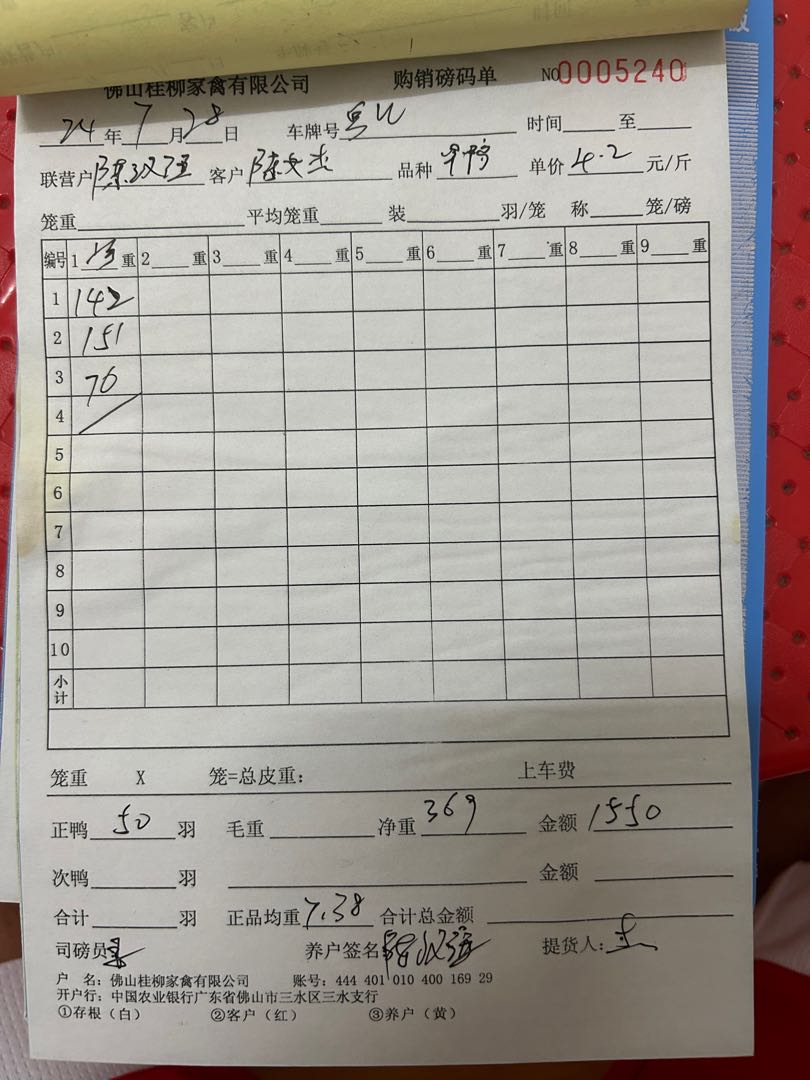 佛山桂柳家禽有限公司 购销磅码单 NO0005240
24年7月28日 车牌号 时间 至
联营户陈汉强 客户陈文杰 品种 单价4.2元/斤
笼重 平均笼重 装 羽/笼 称 笼/磅
编号 1 净 重 2 重 3 重 4 重 5 重 6 重 7 重 8 重 9 重
1 142
2 151
3 76
4
5
6
7
8
9
10
小计
笼重 X 笼=总皮重: 上车费
正鸭 50 羽 毛重 净重 369 金额 1550
次鸭 羽 金额
合计 羽 正品均重7.38 合计总金额
司磅员 养户签名陈汉强 提货人:
户 名: 佛山桂柳家禽有限公司 账号: 444 401 010 400 169 29
开户行: 中国农业银行广东省佛山市三水区三水支行
①存根(白) ②客户(红) ③养户(黄)